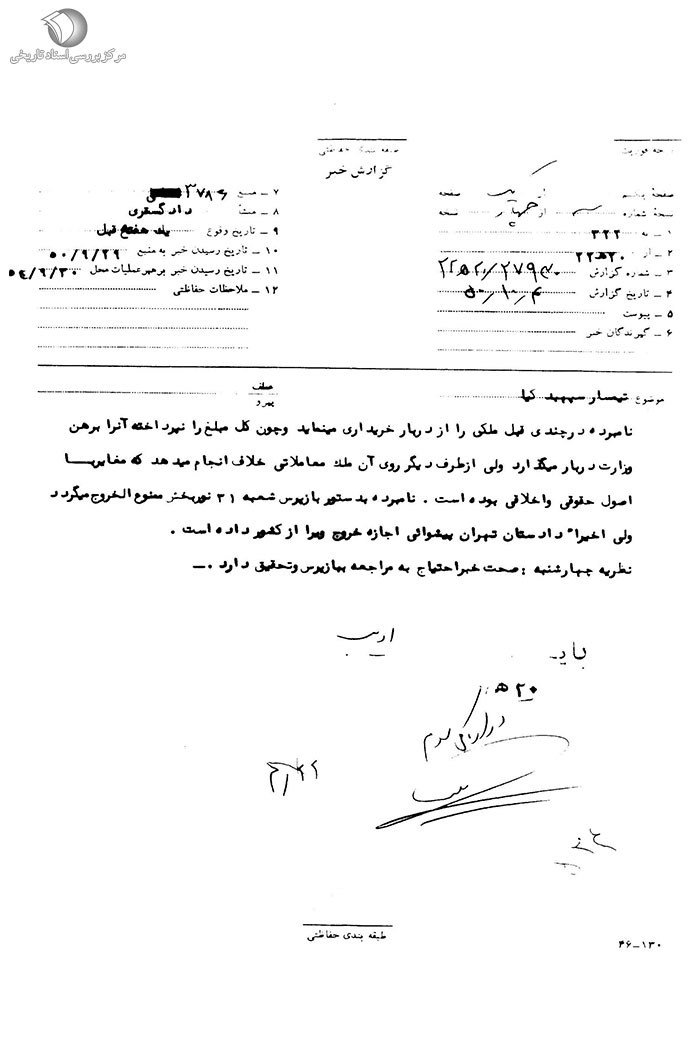 مرکز بررسی اسناد تاریخی
طبقه بندی حفاظتی
گزارش خبر
صفحهٔ یکم از یک صفحه
نسخهٔ شماره از چهار نسخه
۱ ـ به ۳۲۲
۲ ـ از ۲۰ ه ۲۲
۳ ـ شماره گزارش
۴ ـ تاریخ گزارش ۵۰/۱۰/۴
۵ ـ پیوست
۶ ـ گیرندگان خبر
۷ ـ منبع
۸ ـ منشأ دادگستری
۹ ـ تاریخ وقوع یک هفته قبل
۱۰ ـ تاریخ رسیدن خبر به منبع ۵۰/۹/۲۹
۱۱ ـ تاریخ رسیدن خبر برهبر عملیات محل
۱۲ ـ ملاحظات حفاظتی
موضوع تیمسار سپهبد کیا
عطف
پیرو
نامبرده درچندی قبل ملکی را از دربار خریداری مینماید وچون کل مبلغ را نپرداخته آنرا برهن
وزارت دربار میگذارد ولی ازطرف دیگر روی آن ملک معاملاتی خلاف انجام میدهد که مغایربا
اصول حقوقی واخلاقی بوده است . نامبرده بدستور بازپرس شعبه ۳۱ نوربخش ممنوع الخروج میگردد
ولی اخیرا" دادستان تهران پیشوائی اجازه خروج ویرا از کشور داده است .
نظریه چهارشنبه : صحت خبراحتیاج به مراجعه ببازپرس وتحقیق دارد .ـ
۲۰ ه
طبقه بندی حفاظتی
۴۶ـ۱۳۰